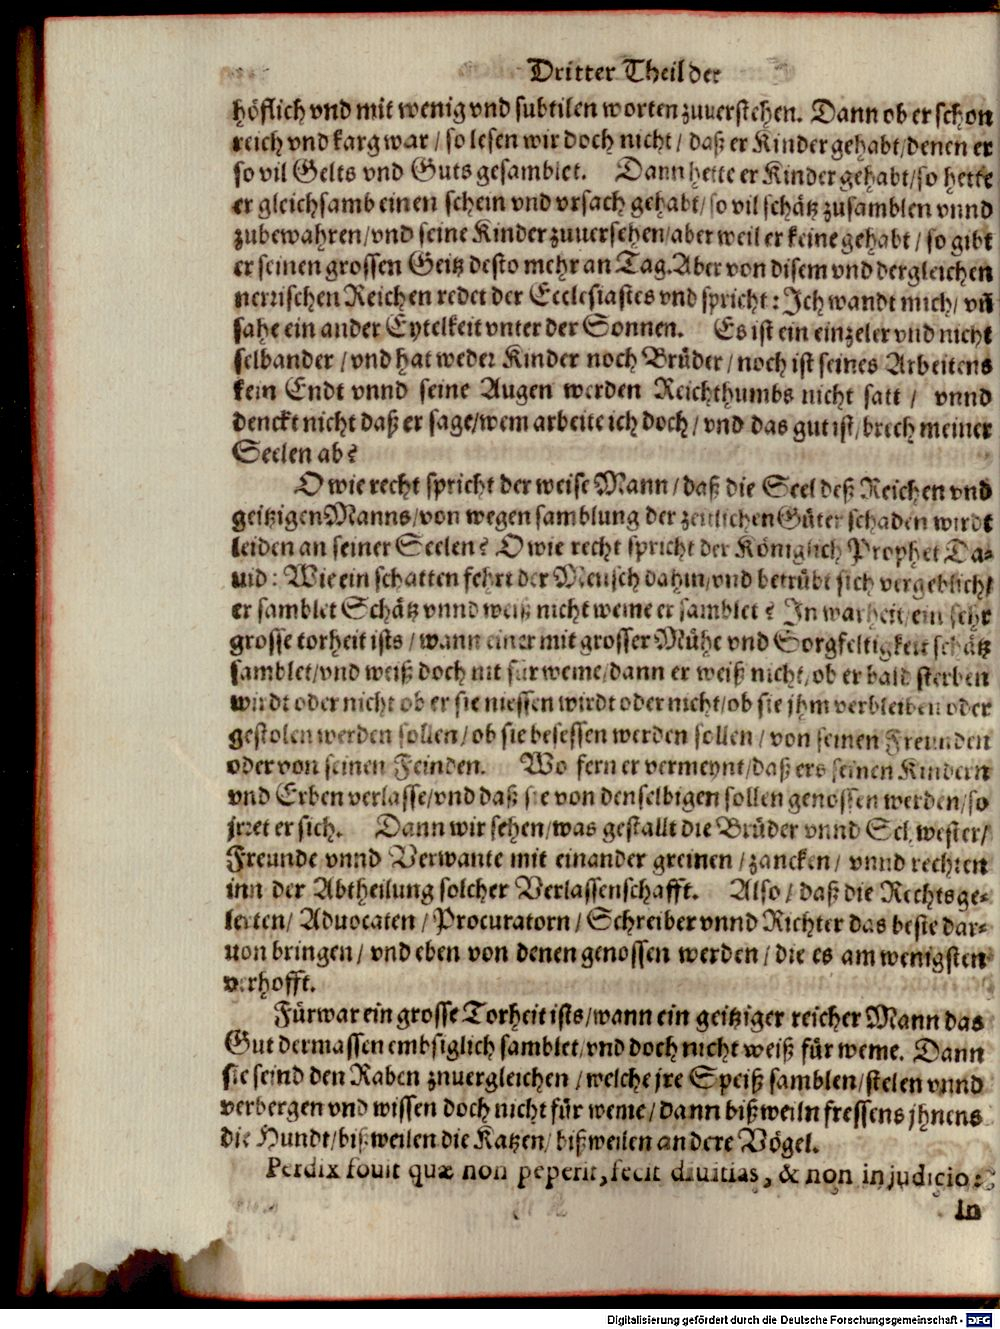 Dritter Theil der
höflich vnd mit wenig vnd subtilen worten zuuerstehen. Dann ob er schon
reich vnd karg war / so lesen wir doch nicht / daß er Kinder gehabt / denen er
so vil Gelts vnd Guts gesamblet. Dann hette er Kinder gehabt / so hette
er gleichsamb einen schein vnd vrsach gehabt / so vil schätz zusamblen vnnd
zubewahren / vnd seine Kinder zuuersehen / aber weil er keine gehabt / so gibt
er seinen grossen Geitz desto mehr an Tag. Aber von disem vnd dergleichen
nerrischen Reichen redet der Ecclesiastes vnd spricht: Ich wandt mich / vñ
sahe ein ander Eytelkeit vnter der Sonnen. Es ist ein einzeler vnd nicht
selbander / vnd hat weder Kinder noch Brüder / noch ist seines Arbeitens
kein Endt vnnd seine Augen werden Reichthumbs nicht satt / vnnd
denckt nicht daß er sage / wem arbeite ich doch / vnd das gut ist / brech meiner
Seelen ab?
O wie recht spricht der weise Mann / daß die Seel deß Reichen vnd
geitzigen Manns / von wegen samblung der zeitlichen Güter schaden wirdt
leiden an seiner Seelen? O wie recht spricht der Königlich Prophet Da-
uid: Wie ein schatten fehrt der Mensch dahin / vnd betrübt sich vergeblich /
er samblet Schätz vnnd weiß nicht weme er samblet? In warheit / ein sehr
grosse torheit ists / wann einer mit grosser Mühe vnd Sorgfeltigkeit schätz
samblet / vnd weiß doch nit für weme / dann er weiß nicht / ob er bald sterben
wirdt oder nicht ob er sie niessen wirdt oder nicht / ob sie jhm verbleiben oder
gestolen werden sollen / ob sie besessen werden sollen / von seinen Freunden
oder von seinen Feinden. Wo fern er vermeynt / daß ers seinen Kindern
vnd Erben verlasse / vnd daß sie von denselbigen sollen genossen werden / so
jrret er sich. Dann wir sehen / was gestallt die Brüder vnnd Schwester /
Freunde vnnd Verwante mit einander greinen / zancken / vnnd rechten
inn der Abtheilung solcher Verlassenschafft. Also / daß die Rechtsge-
lerten / Aduocaten / Procuratorn / Schreiber vnnd Richter das beste dar-
uon bringen / vnd eben von denen genossen werden / die es am wenigsten
verhofft.
Fürwar ein grosse Torheit ists / wann ein geitziger reicher Mann das
Gut dermassen embsiglich samblet / vnd doch nicht weiß für weme. Dann
sie seind den Raben znuergleichen / welche jre Speiß samblen / stelen vnnd
verbergen vnd wissen doch nicht für weme / dann bißweiln fressens jhnens
die Hundt / bißweilen die Katzen / bißweilen andere Vögel.
Perdix fouit quæ non peperit, fecit diuitias, & non in judicio:
In
Digitalisierung gefördert durch die Deutsche Forschungsgemeinschaft - DFG